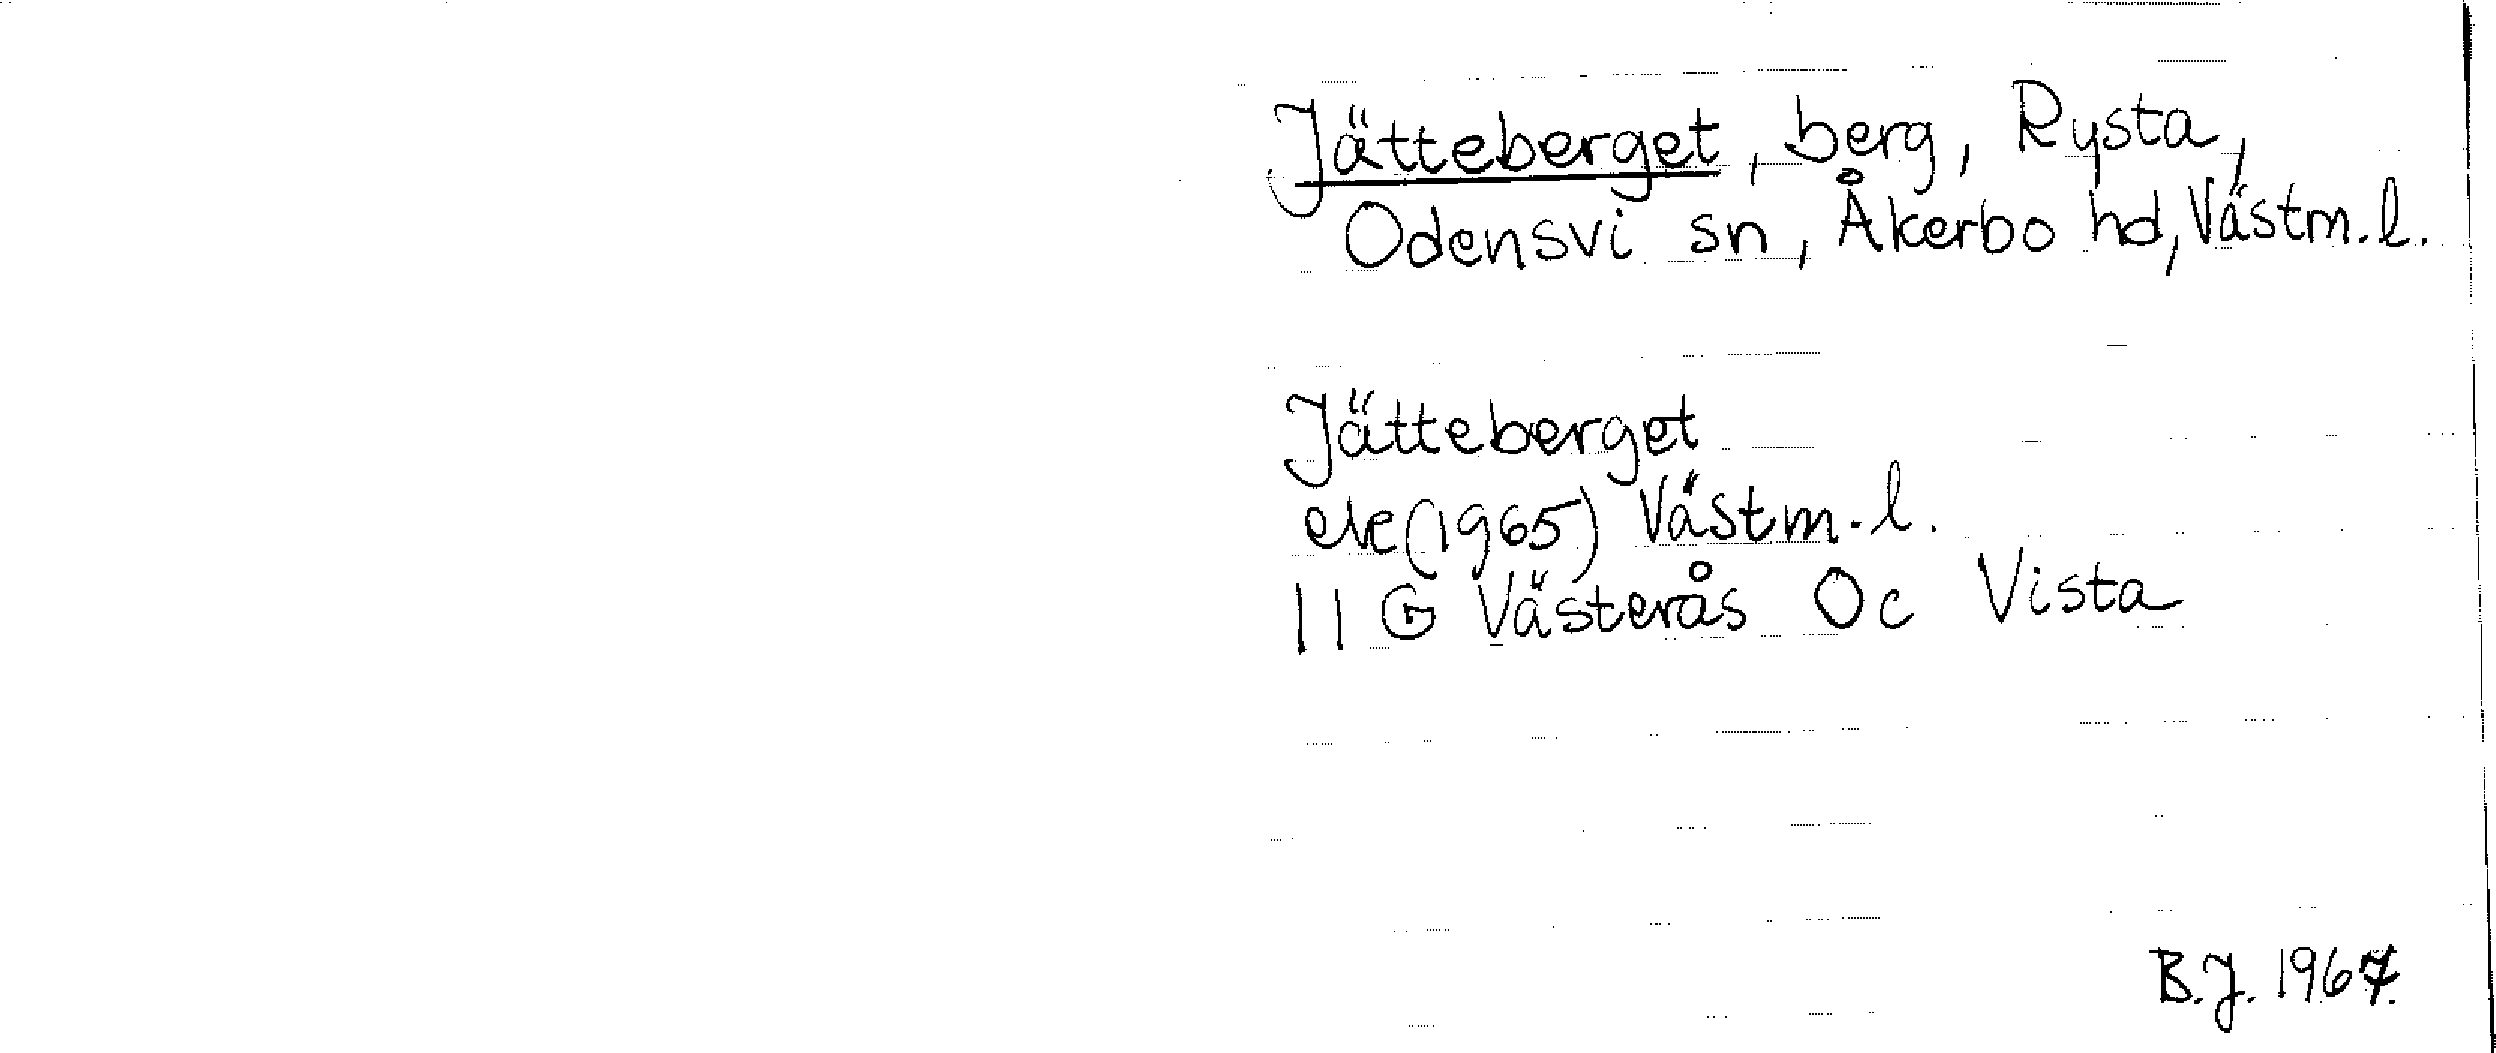 Jätteberget, berg, Rysta,
Odensvi sn, Åkerbo hd, Västm. l.
Jätteberget
ek (1965) Västm. l.
11 G Västerås Oc Vista
B.J. 1967